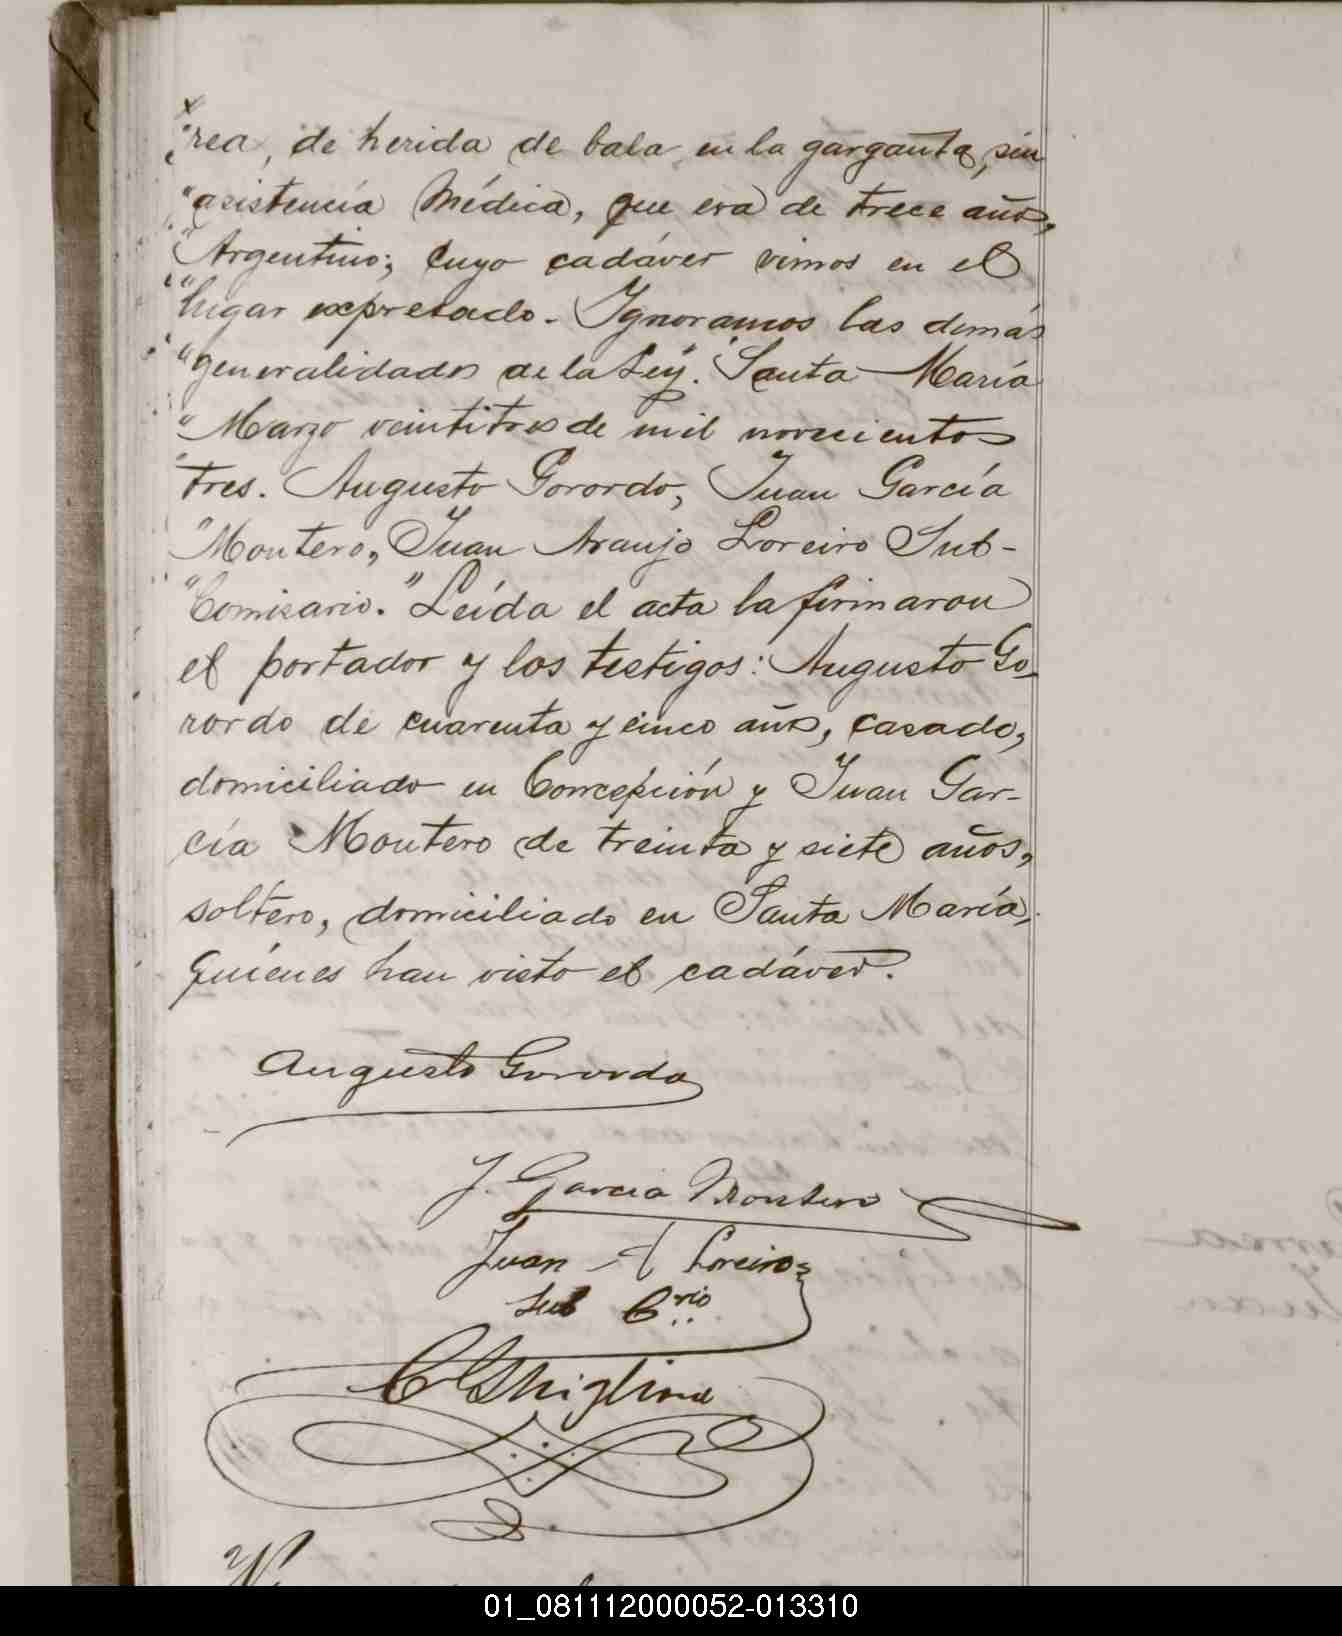 "rea, de herida de bala en la garganta, sin
"asistencia Médica, que era de trece años,
"Argentino; cuyo cadáver vimos en el
"lugar expresado. Ignoramos las demás
"generalidades de la Ley". Santa María
"Marzo veintitres de mil novecientos
"tres. Augusto Gorordo, Juan García
"Montero, Juan Araujo Loreiro Sub-
"Comisario." Leída el acta la firmaron
el portador y los testigos: Augusto Go-
rordo de cuarenta y cinco años, casado,
domiciliado en Concepción y Juan Gar-
cía Montero de treinta y siete años,
soltero, domiciliado en Santa María,
quienes han visto el cadáver.
Augusto Gorordo
J. Garcia Montero
Juan A Loreiro
Sub Crio
C Ghiglione
01_081112000052-013310